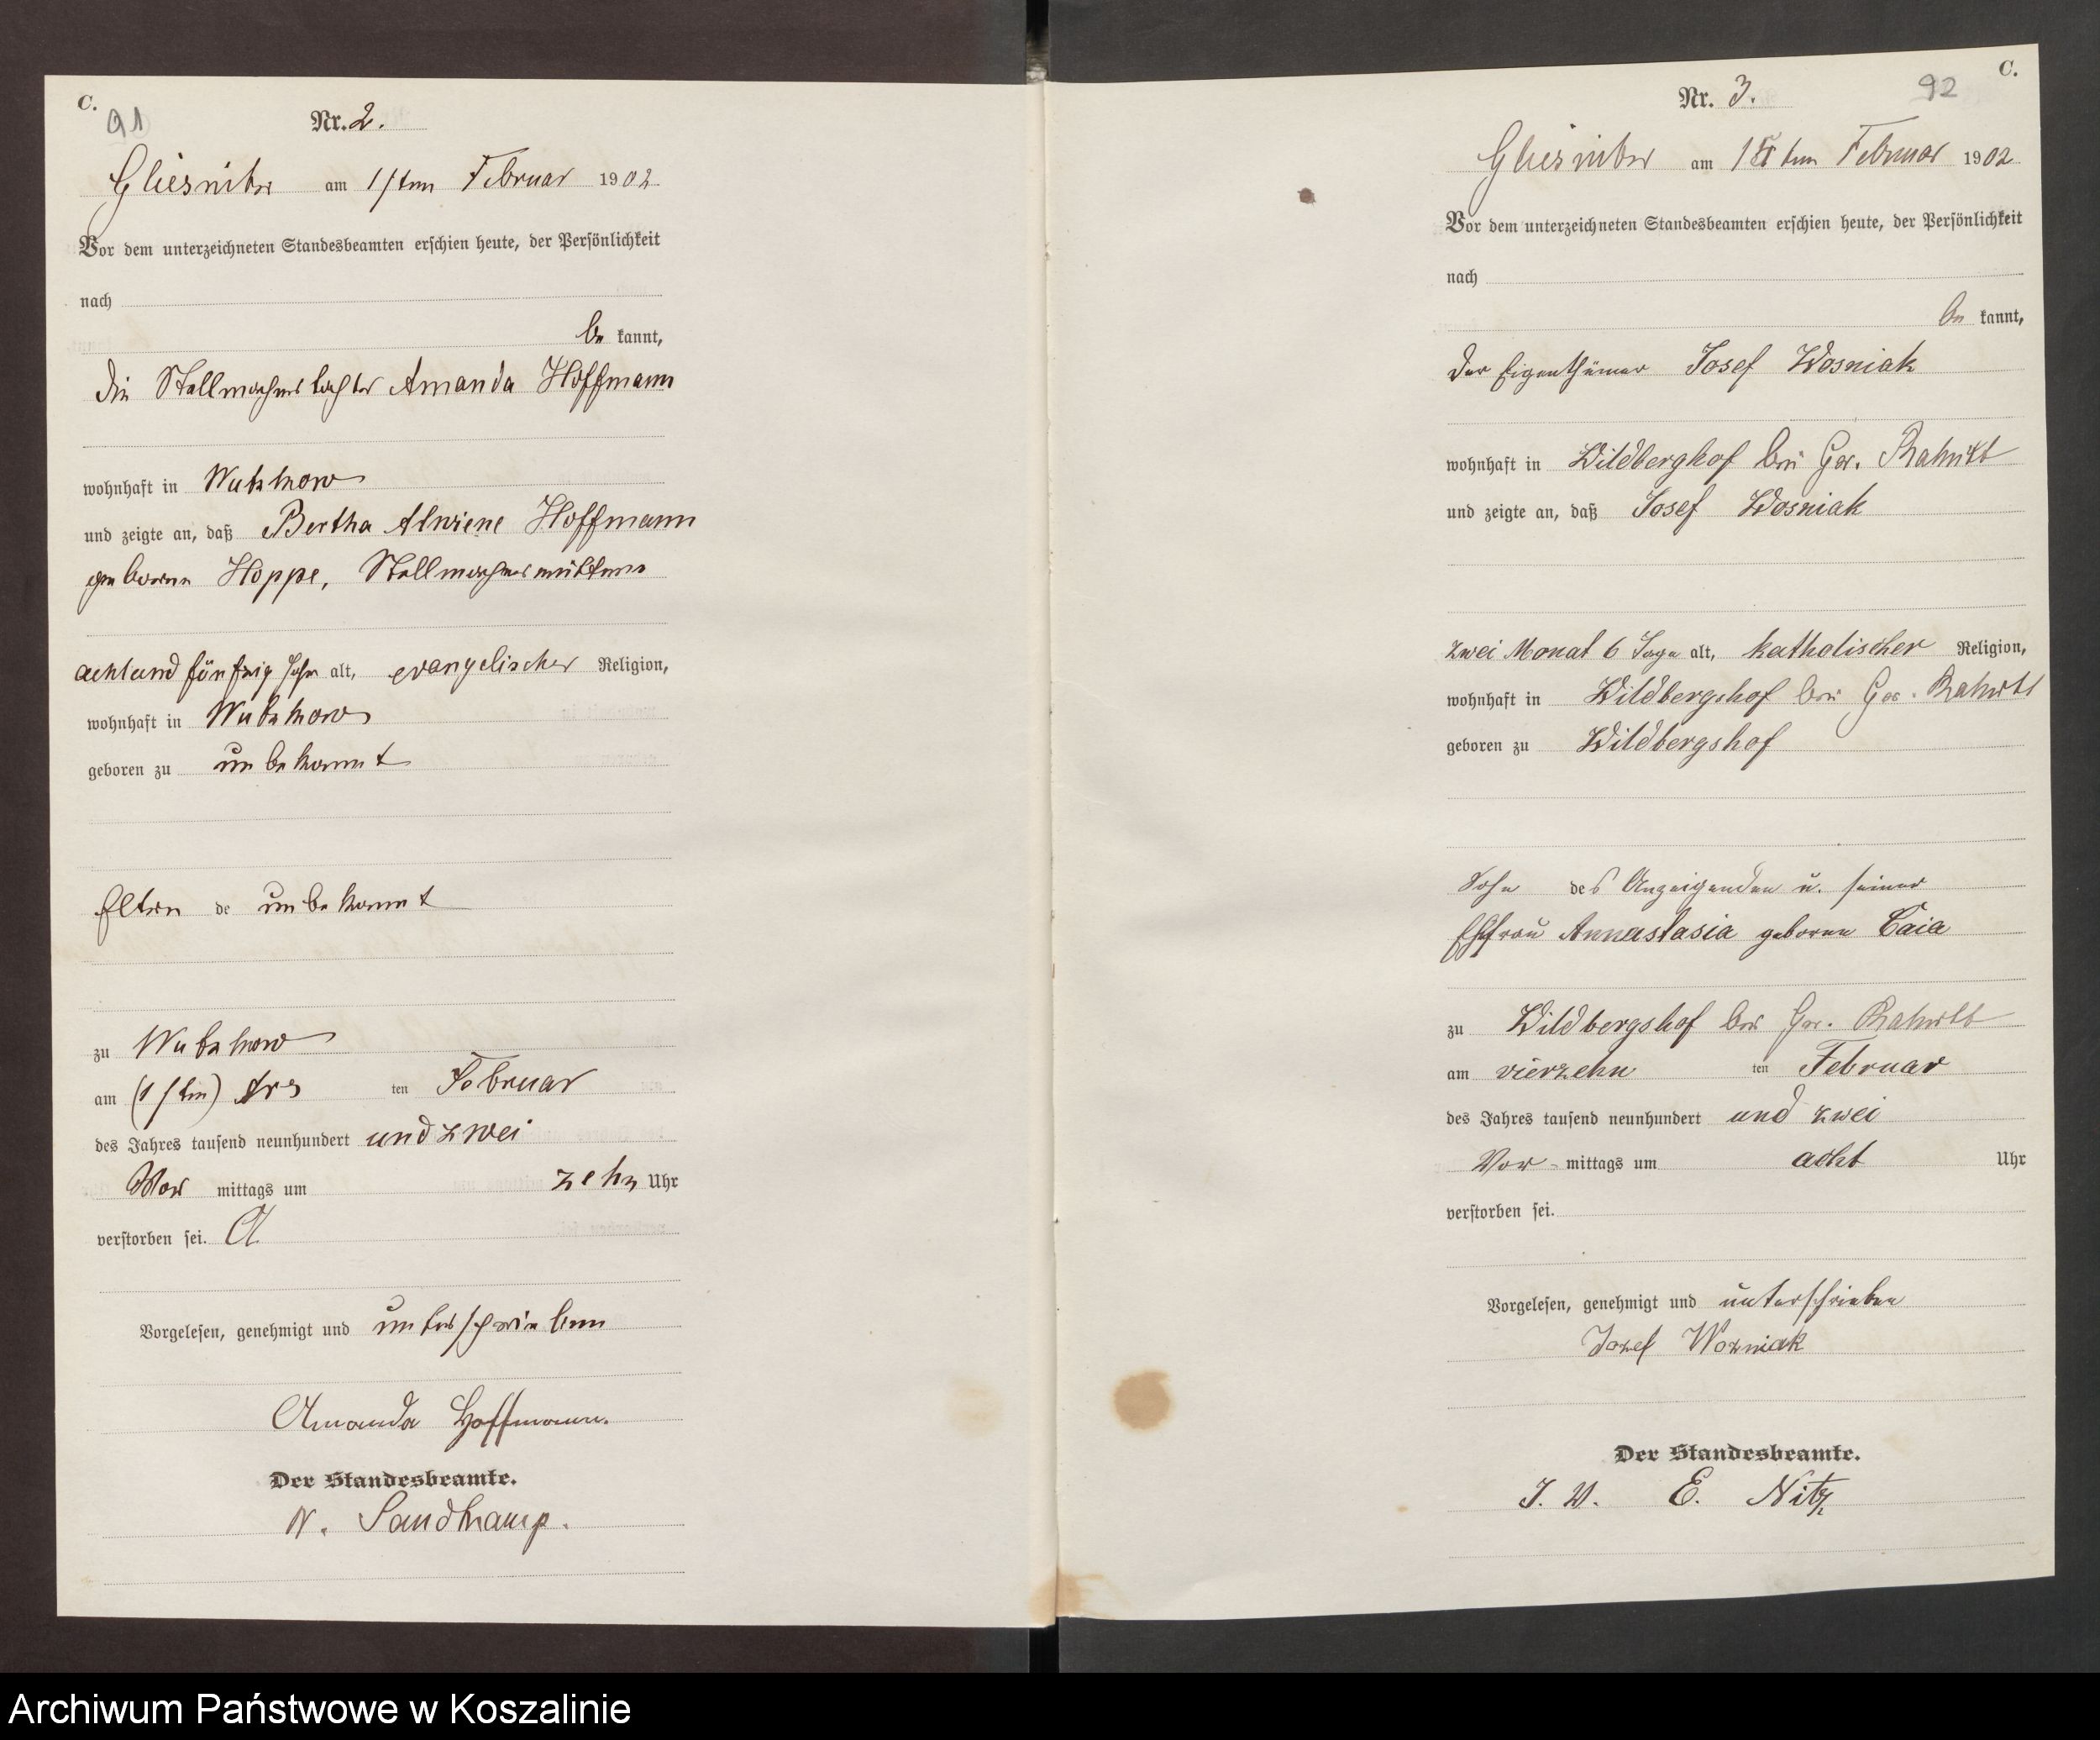 C.
91
Nr. 2.
Gliesnitz am 1sten Februar 1902
Vor dem unterzeichneten Standesbeamten erschien heute, der Persönlichkeit
nach
be kannt,
die Stellmachertochter Amanda Hoffmann
wohnhaft in Wutzkow
und zeigte an, daß Bertha Alwiene Hoffmann
geborene Hoppe, Stellmacherwittwe
achtundfünfzig Jahre alt, evangelischer Religion,
wohnhaft in Wutzkow
geboren zu unbekannt
Eltern de unbekannt
zu Wutzkow
am (1sten) ten Februar
des Jahres tausend neunhundert und zwei
Vor mittags um zehn Uhr
verstorben sei.
Vorgelesen, genehmigt und unterschrieben
Amanda Hoffmann.
Der Standesbeamte.
W. Sandkamp.
C.
92
Nr. 3.
Gliesnitz am ten Februar 1902
Vor dem unterzeichneten Standesbeamten erschien heute, der Persönlichkeit
nach
be kannt,
der Eigenthümer Josef Wosniak
wohnhaft in Wildberghof bei Gr. Rakitt
und zeigte an, daß Josef Wosniak
zwei Monat 6 Tage alt, katholischer Religion,
wohnhaft in Wildbergshof bei Gr. Rakitt
geboren zu Wildbergshof
Sohn des Anzeigenden u. seiner
Ehefrau Annastasia geborene Caia
zu Wildbergshof bei Gr. Rakitt
am vierzehn ten Februar
des Jahres tausend neunhundert und zwei
Vor - mittags um acht Uhr
verstorben sei.
Vorgelesen, genehmigt und unterschrieben
Jozef Wozniak
Der Standesbeamte.
I. V. E. Nitz
Archiwum Państwowe w Koszalinie